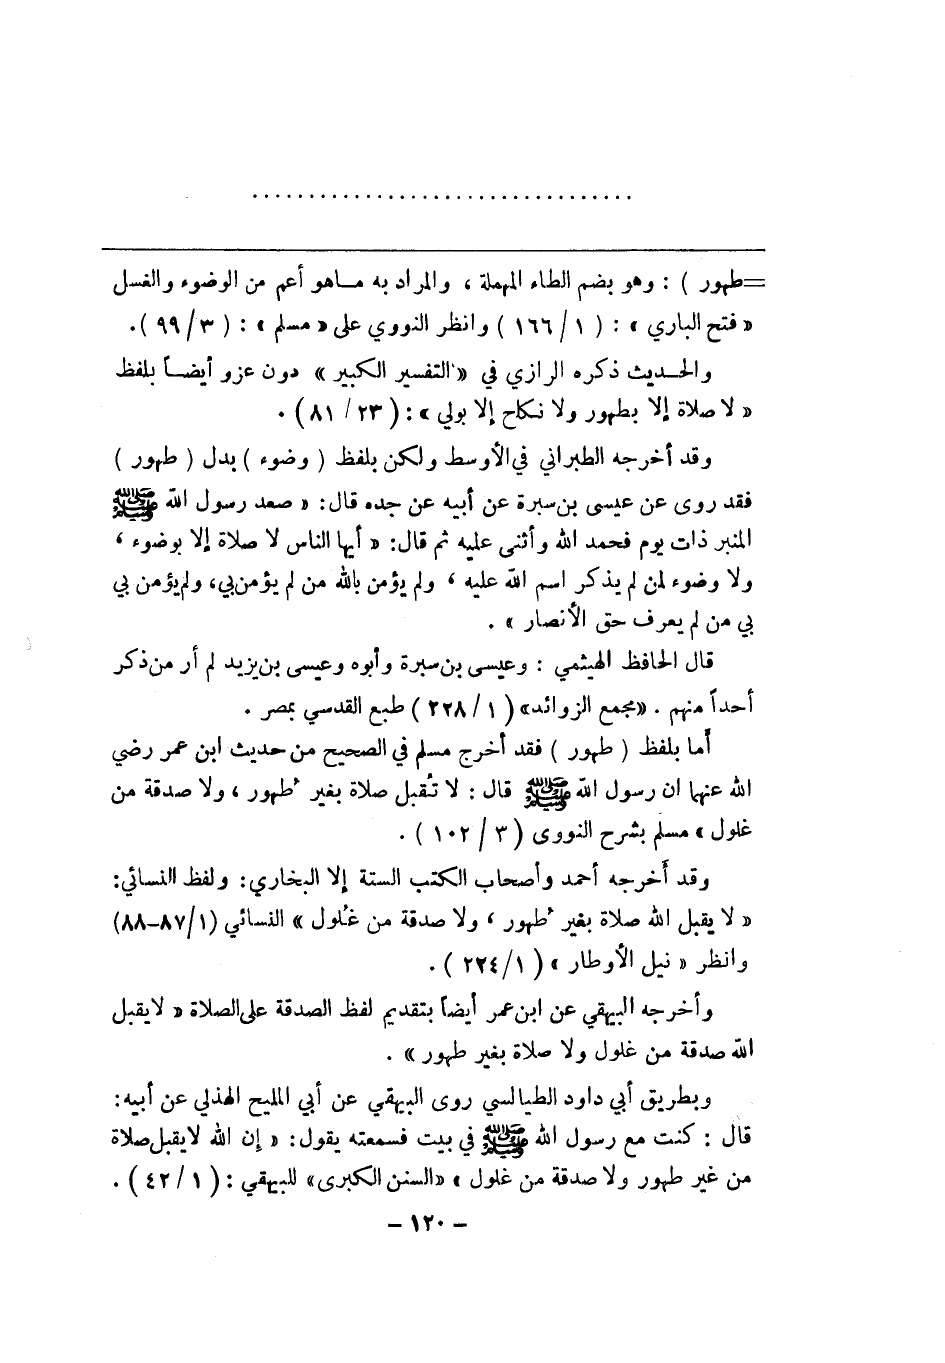 . . . . . . . . . . . . . . . . . . . . . . . . . . . . . . . . .
=طهور ) : وهو بضم الطاء المهملة ، والمراد به مـاهو أعم من الوضوء والغسل
« فتح الباري » : ( ١ / ١٦٦ ) وانظر النووي على « مسلم » : ( ٣ / ٩٩ ).
والحـديث ذكره الرازي في « التفسير الكبير » دون عزو أيضـاً بلفظ
« لا صلاة إلا بطهور ولا نكاح إلا بولي » : ( ٢٣ / ٨١ ) .
وقد أخرجه الطبراني في الأوسط ولكن بلفظ ( وضوء ) بدل ( طهور )
فقد روى عن عيسى بن سبرة عن أبيه عن جده قال: « صعد رسول الله ﷺ
المنبر ذات يوم فحمد الله وأثنى عليه ثم قال: « أيها الناس لا صلاة إلا بوضوء ،
ولا وضوء لمن لم يذكر اسم الله عليه ، ولم يؤمن بالله من لم يؤمن بي، ولم يؤمن بي
بي من لم يعرف حق الأنصار » .
قال الحافظ الهيثمي : وعيسى بن سبرة وأبوه وعيسى بن يزيد لم أر من ذكر
أحداً منهم . «مجمع الزوائد» ( ١ / ٢٢٨ ) طبع القدسي بمصر .
أما بلفظ ( طهور ) فقد أخرج مسلم في الصحيح من حديث ابن عمر رضي
الله عنهما ان رسول الله ﷺ قال : لا تُقبل صلاة بغير طُهور ، ولا صدقة من
غلول » مسلم بشرح النووى ( ٣ / ١٠٢ ) .
وقد أخرجه أحمد وأصحاب الكتب الستة إلا البخاري: ولفظ النسائي:
« لا يقبل الله صلاة بغير طُهور ، ولا صدقة من غُلول » النسائي (١/ ٨٧–٨٨)
وانظر « نيل الأوطار » ( ١/ ٢٢٤ ) .
وأخرجه البيهقي عن ابن عمر أيضاً بتقديم لفظ الصدقة على الصلاة « لا يقبل
الله صدقة من غلول ولا صلاة بغير طهور » .
وبطريق أبي داود الطيالسي روى البيهقي عن أبي المليح الهذلي عن أبيه:
قال : كنت مع رسول الله ﷺ في بيت فسمعته يقول: « إن الله لا يقبل صلاة
من غير طهور ولا صدقة من غلول » «السنن الكبرى» للبيهقي : ( ١ / ٤٢ ) .
– ١٢٠ –